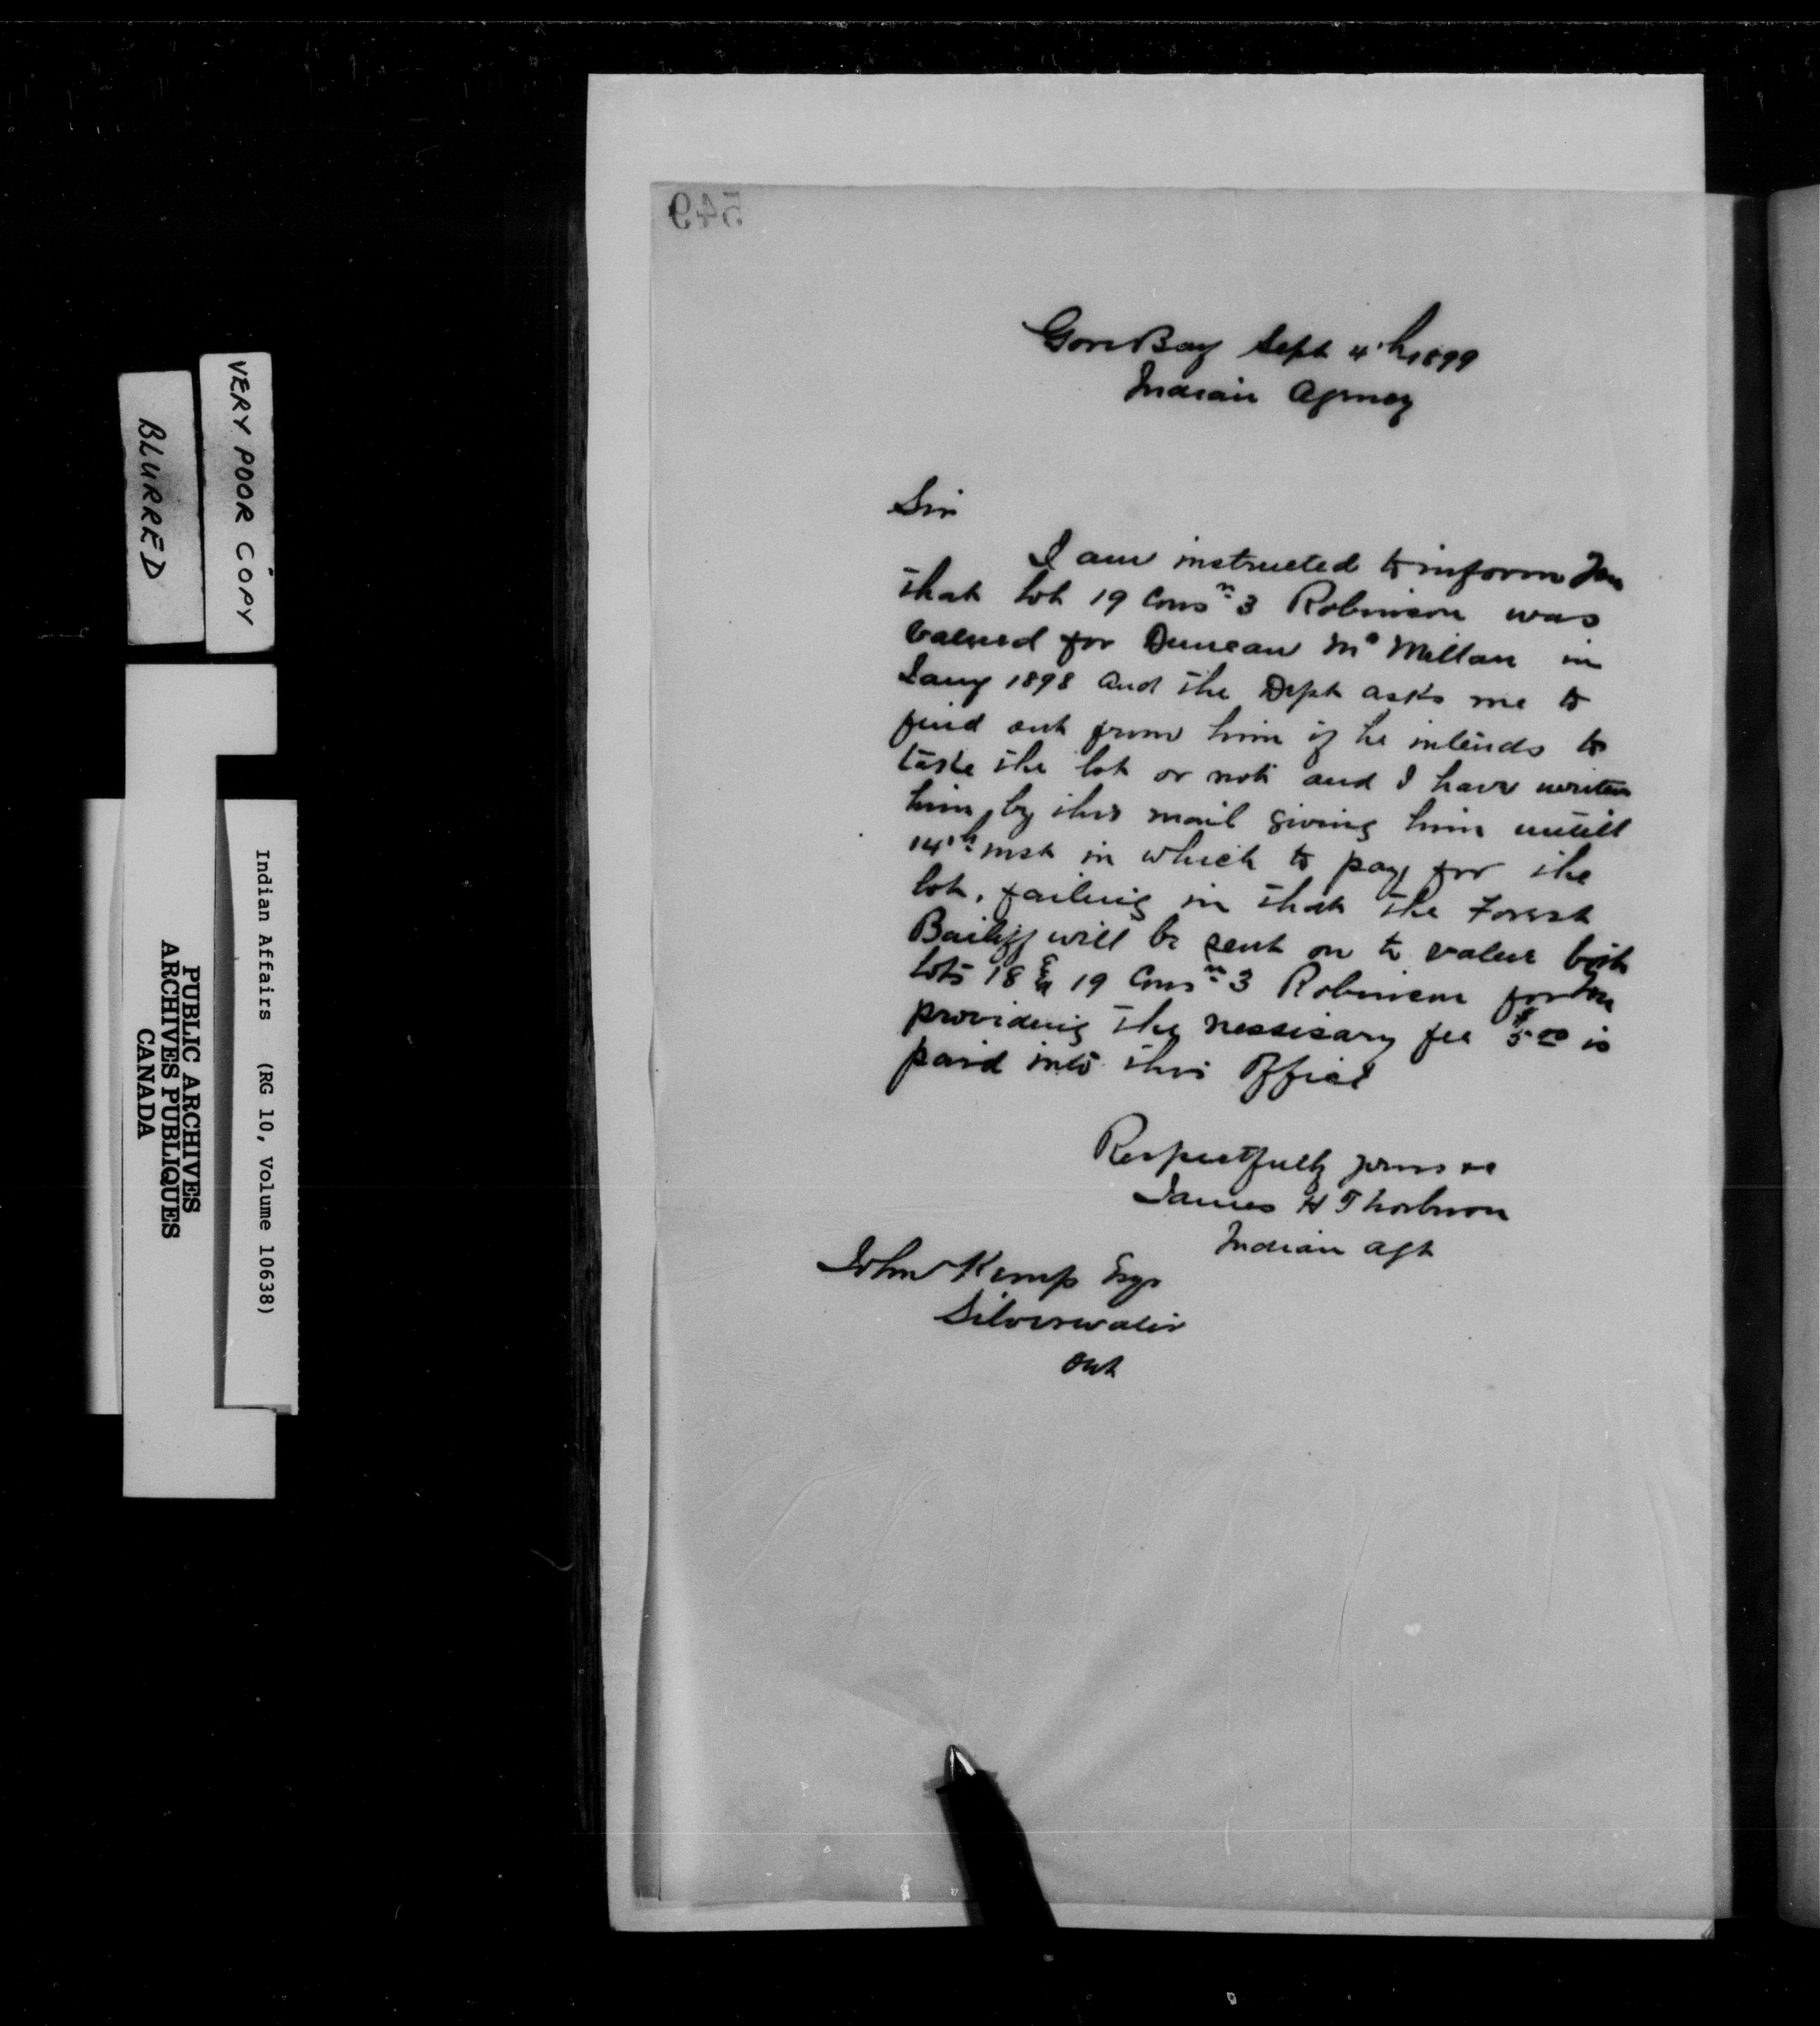 549
Gore Bay Sept 4th 1899
Indian Agency
Sir
I am instructed to inform you
that lot 19 Consn 3 Robinson was
valued for Duncan Mc Millan in
Jany 1898 and the Dept asks me to
find out from him if he intends to
take the lot or not and I have written
him by this mail giving him untill
14th inst in which to pay for the
lot, failing in that the Forest
Bailiff will be sent on to value both
lots 18 & 19 Consn 3 Robinson for you
providing the nessisary fee $5.00 is
paid into this Office
Respectfully yours &c
James H Thorburn
Indian Agt
John Kemp Esqr
Silverwater
Ont
VERY POOR COPY
BLURRED
Indian Affairs (RG 10, Volume 10638)
PUBLIC ARCHIVES
ARCHIVES PUBLIQUES
CANADA